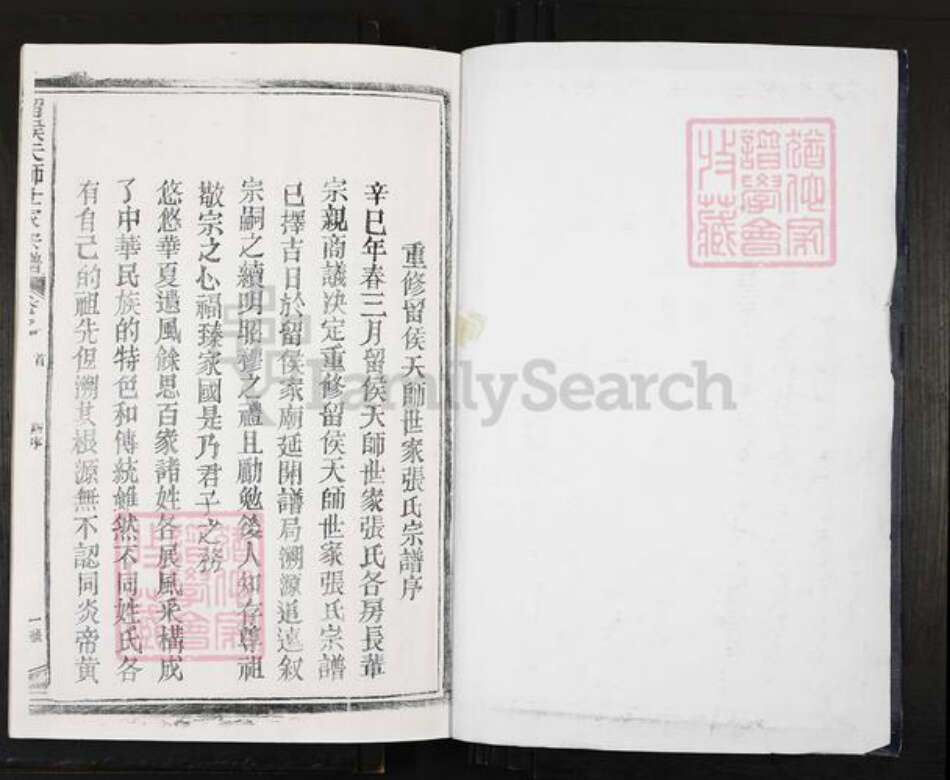 重修留侯天師世家張氏宗譜序
辛巳年春三月留侯天師世家張氏各房長輩
宗親商議决定重修留侯天師世家張氏宗譜
已擇吉日於留侯家廟延開譜局溯源追遠叙
宗嗣之續明昭穆之禮且勵勉後人知存尊祖
敬宗之心福臻家國是乃君子之務
悠悠華夏遺風餘思百家諸姓各展風采構成
了中華民族的特色和傳統雖然不同姓氏各
有自己的祖先但溯其根源無不認同炎帝黃
留侯天師世家宗譜
首
一
譜學會
收藏
FamilySearch